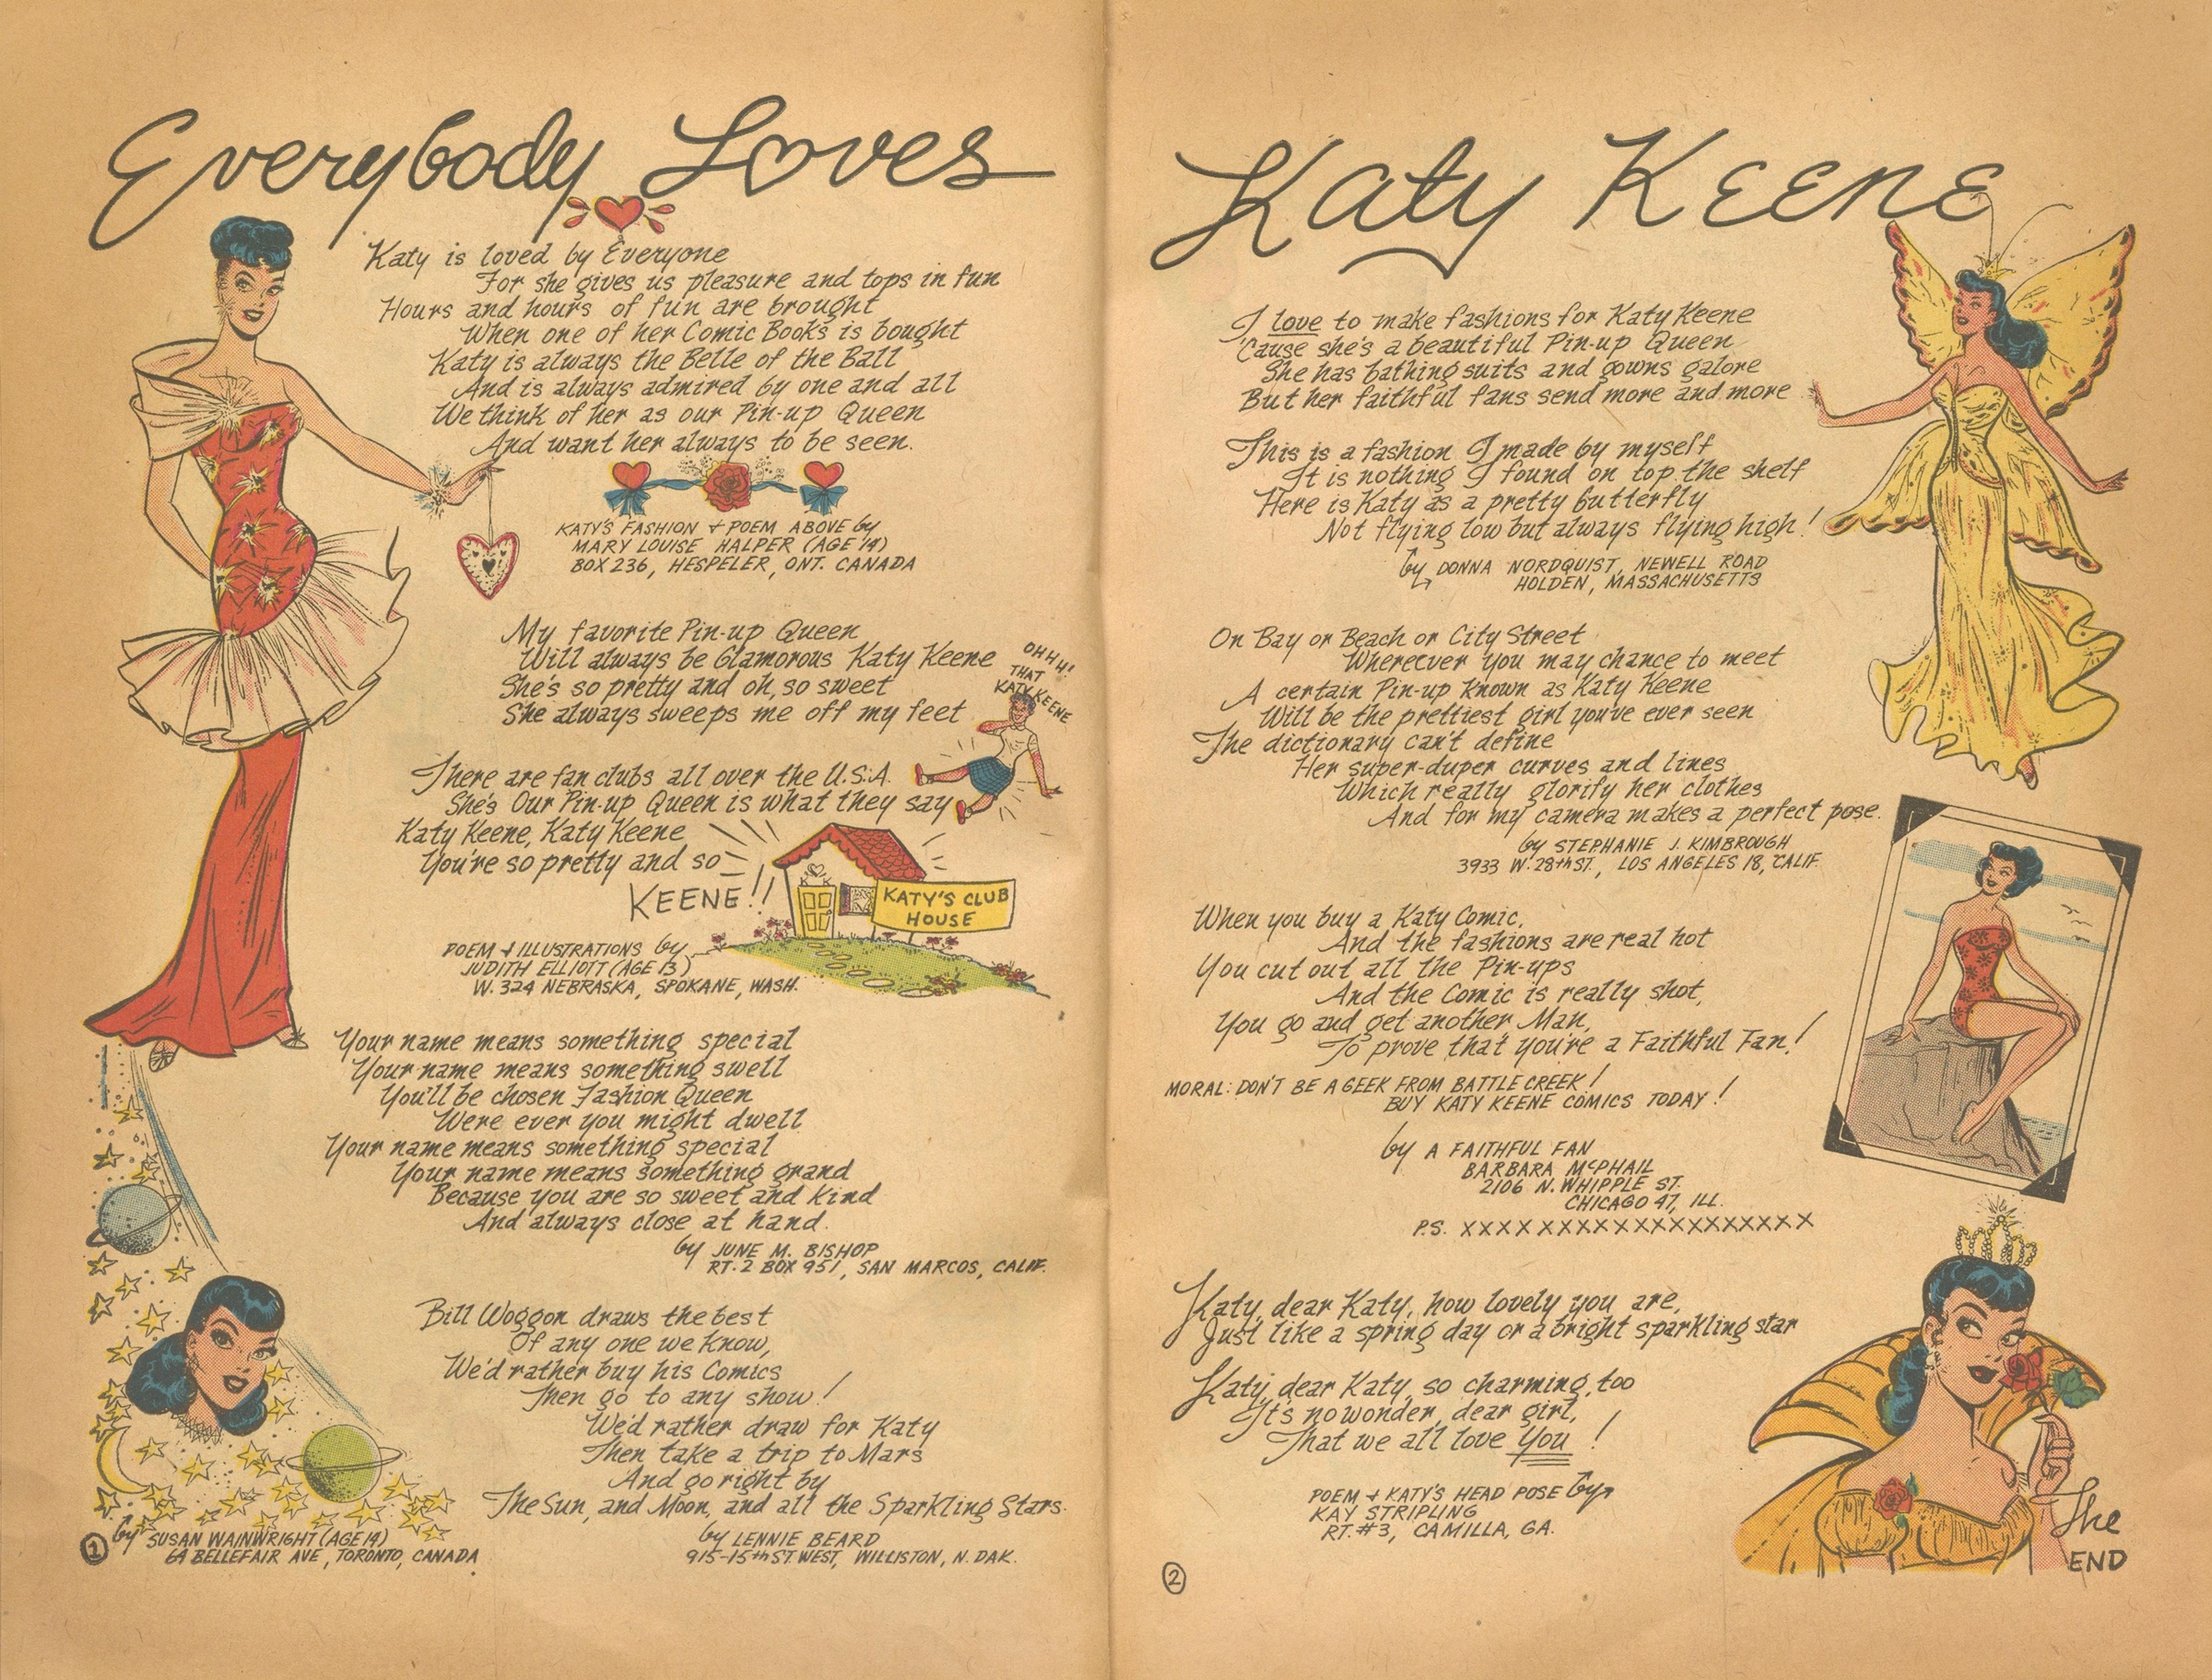 Everybody Loves
Katy is loved by Everyone
For she gives us pleasure and tops in fun
Hours and hours of fun are brought
When one of her Comic Books is bought
Katy is always the Belle of the Ball
And is always admired by one and all
We think of her as our Pin-up Queen
And want her always to be seen.
KATY'S FASHION + POEM ABOVE by
MARY LOUISE HALPER (AGE 14)
BOX 236, HESPELER, ONT. CANADA
My favorite Pin-up Queen
Will always be Glamorous Katy Keene
She's so pretty and oh, so sweet
She always sweeps me off my feet
OHHH!
THAT
KATY KEENE
There are fan clubs all over the U.S.A.
She's Our Pin-up Queen is what they say
Katy Keene, Katy Keene
You're so pretty and so
KEENE!!
KATY'S CLUB
HOUSE
POEM + ILLUSTRATIONS by
JUDITH ELLIOTT (AGE 13)
W. 324 NEBRASKA, SPOKANE, WASH.
Your name means something special
Your name means something swell
You'll be chosen Fashion Queen
Were ever you might dwell
Your name means something special
Your name means something grand
Because you are so sweet and kind
And always close at hand.
by JUNE M. BISHOP
RT. 2 BOX 951, SAN MARCOS, CALIF.
Bill Woggon draws the best
Of any one we know,
We'd rather buy his Comics
Then go to any show!
We'd rather draw for Katy
Then take a trip to Mars
And go right by
The Sun, and Moon, and all the Sparkling Stars.
by LENNIE BEARD
915-15th ST. WEST, WILLISTON, N. DAK.
1 by SUSAN WAINWRIGHT (AGE 14)
64 BELLEFAIR AVE, TORONTO, CANADA
Katy Keene
I love to make fashions for Katy Keene
'Cause she's a beautiful Pin-up Queen
She has bathing suits and gowns galore
But her faithful fans send more and more
This is a fashion I made by myself
It is nothing I found on top the shelf
Here is Katy as a pretty butterfly
Not flying low but always flying high!
by DONNA NORDQUIST, NEWELL ROAD
HOLDEN, MASSACHUSETTS
On Bay or Beach or City Street
Whereever you may chance to meet
A certain Pin-up Known as Katy Keene
Will be the prettiest girl you've ever seen
The dictionary can't define
Her super-duper curves and lines
Which really glorify her clothes
And for my camera makes a perfect pose.
by STEPHANIE J. KIMBROUGH
3933 W. 28th ST., LOS ANGELES 18, CALIF.
When you buy a Katy Comic,
And the fashions are real hot
You cut out all the Pin-ups
And the Comic is really shot,
You go and get another Man,
To prove that you're a Faithful Fan!
MORAL: DON'T BE A GEEK FROM BATTLE CREEK!
BUY KATY KEENE COMICS TODAY!
by A FAITHFUL FAN
BARBARA McPHAIL
2106 N. WHIPPLE ST.
CHICAGO 47, ILL.
P.S. XXXXXXXXXXXXXXXXXXX
Katy, dear Katy, how lovely you are,
Just like a spring day or a bright sparkling star
Katy, dear Katy, so charming, too
It's no wonder, dear girl,
That we all love You!
POEM + KATY'S HEAD POSE by
KAY STRIPLING
RT. #3, CAMILLA, GA.
The
END
2